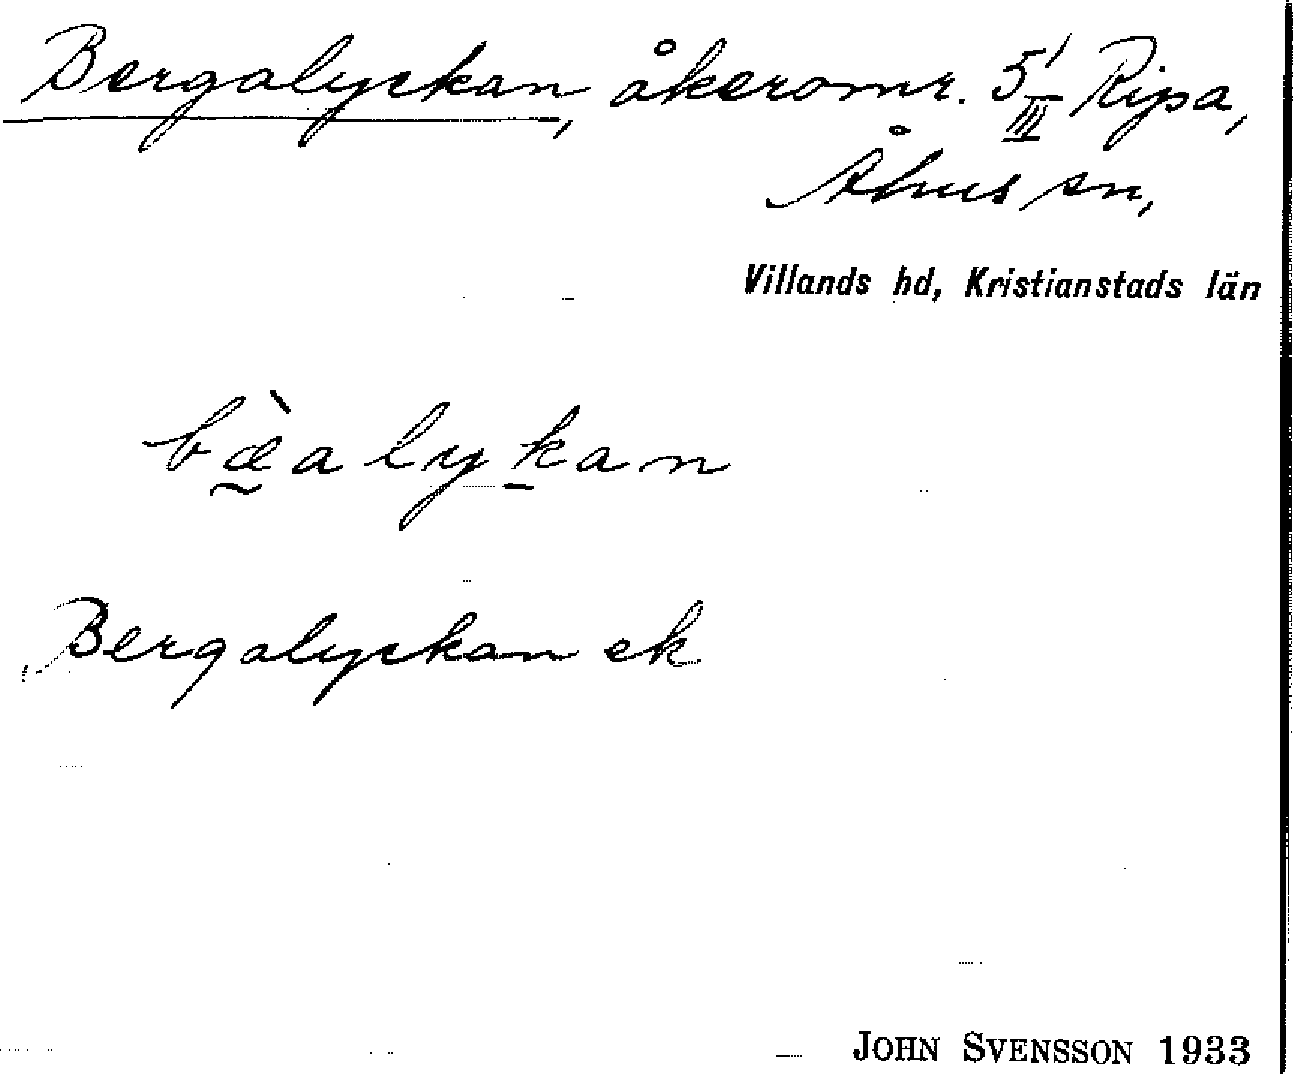 Bergalyckan, åkeromr. 5/III Ripa,
Åhus sn,
Villands hd, Kristianstads län
bæ̀alykan
Bergalyckan ek
JOHN SVENSSON 1933